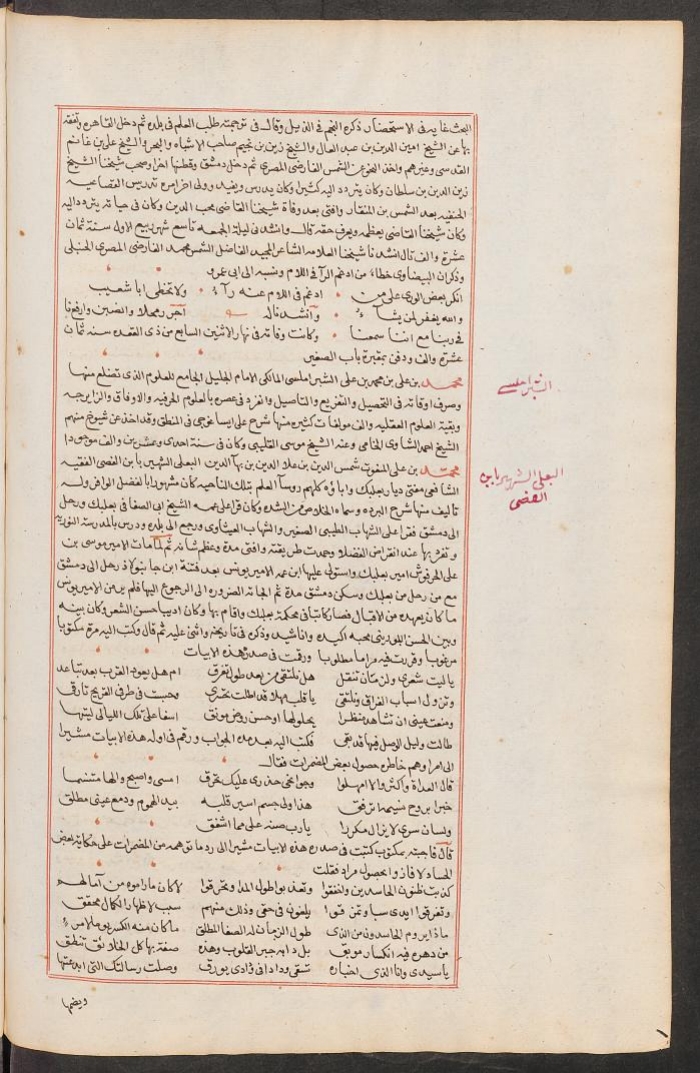 البحث غاية فى الاستحضار ذكره النجم فى الذيل وقال فى ترجمته طلب العلم فى بلده ثم دخل القاهره وتفقه
بها عن الشيخ امين الدين بن عبد العال والشيخ زين بن نجيم صاحب الاشباه والبحر والشيخ على بن غانم
القدسى وغيرهم واخذ النحو عن الشمس الفارضى المصرى ثم دخل دمشق وقطنها اخرا وصحب شيخنا الشيخ
زين الدين بن سلطان وكان يتردد اليه كثيرا وكان يدرس ويفيد وولى اخر امره تدريس القصاعيه
الحنفيه بعد الشمس بن المنقار وافتى بعد وفاة شيخنا القاضى محب الدين وكان فى حياته يتردد اليه
وكان شيخنا القاضى يعظمه ويعرف حقه قال وانشدنى ليلة الجمعه تاسع شهر ربيع الاول سنة ثمان
عشرة والف قال انشدنا شيخنا العلامه الشاعر المجيد الفاضل الشمس محمد الفارضى المصرى الحنبلى
وذكر ان البيضاوى خطاء من ادغم الرآ فى اللام ونسبه الى ابى عمرو
انكر بعض الورى على من ادغم فى اللام عنه رآء ولا تخطى ابا شعيب
والله يغفر لمن يشآء وانشدنا له
فى ربنا مع اننا سمعنا وكانت وفاته فى نهار الاثنين السابع من ذى القعده سنه ثمان
عشرة والف ودفن بمقبرة باب الصغير
محمد بن على بن محمد بن على الشبراملسى المالكى الامام الجليل الجامع للعلوم الذى تضلع منها
وصرف اوقاته فى التحصيل والتفريع والتاصيل وانفرد فى عصره بالعلوم الحرفيه والاوفاق والزايرجه
وبقية العلوم العقليه والف مولفات كثيره منها شرح على ايساغوجى فى المنطق وقد اخذ عن شيوخ منهم
الشيخ احمد الشناوى الخامى وعنه الشيخ موسى القليبى وكان فى سنة احدى وعشرين والف موجودا
محمد بن على المنعوت شمس الدين بن علا الدين بن بهآ الدين البعلى الشهير بابن الفصى الفقيه
الشافعى مفتى ديار بعلبك واباؤه كلهم روسآ العلم بتلك الناحيه كان مشهورا بالفضل الوافر وله
تاليف منها شرح البرده وسماه الخلاص من الشده وكان قرا على عمه الشيخ ابى الصفا فى بعلبك ورحل
الى دمشق فقرا على الشهاب الطيبى الصغير والشهاب العيثاوى ورجع الى بلده ودرس بالمدرسة النوريه
وتفرد بها عند انقراض الفضلا وحمدت طريقته وافتى مدة وعظم شانه ثم لما مات الامير موسى بن
على الحرفوش امير بعلبك واستولى عليها ابن عمه الامير يونس بعد فتنة ابن جانبولاذ رحل الى دمشق
مع من رحل من بعلبك وسكن دمشق مدة ثم الجاته الضروره الى الرجوع اليها فلم ير من الامير يونس
ما كان يعهده من الاقبال فصار كاتبا فى محكمة بعلبك واقام بها وكان اديبا حسن الشعر وكان بينه
وبين الحسن البورينى محبه اكيده واناشيد وذكره فى تاريخه واثنى عليه ثم قال وكتب اليه مرة مكتوبا
مرغوبا وقررت فيه مراما مطلوبا ورقمت فى صدره هذه الابيات
يا ليت شعرى والزمان تنقل هل نلتقى من بعد طول تفرق ام هل يعود القرب بعد تباعد
وتزول اسباب الفراق ونلتقى يا قلب مهلا قد اطلت تحسرى وحبست فى طرفى القريح تارقى
ومنعت عينى ان تشاهد منظرا يحلو لها او حسن روض مونق اسفا على تلك الليالى ليتها
طالت وليل الوصل فيها قد بقى فكتب اليه بعد مده الجواب ورقم فى اوله هذه الابيات مشيرا
الى امر اوهم خاطره حصول بعض المضمرات فقال
قال العداة واكثروا لا امهلوا وجوانحى حذرى عليك تحرق امسى واصبح والها متنسما
خبرا بروح نسيمه اترفق هذا ولى جسم اسير قلبه بيد الهموم ودمع عينى مطلق
ولسان سرى لا يزال مكررا يا رب صنه على مما اشفق
قال فاجبته بمكتوب كتبت فى صدره هذه الابيات مشيرا الى رد ما توهمه من المضمرات على حكاية بعض
الحساد لا فاز وا بحصول مراد فقلت
كذبت ظنون الحاسدين واخفقوا وتعذبوا طول المدا وتحرقوا لا كان ما راموه من آمالهم
وتفرقوا ايدى سبا وتمزقوا يلغون فى حقى وذلك منهم سبب لاظهار الكمال محقق
ماذا يروم الحاسدون من الذى طول الزمان له الصفا المطلق ما كان منه الكسر يوما لامرء
من دهره فيه انكسار موبق بل دابه جبر القلوب وهذه صفة بها كل الخلائق تنطق
يا سيدى وانا الذى اخباره تسقى ودادا فى فؤادى يورق وصلت رسالتك التى ابدعتها
وبضمها
الشبراملسى
البعلى الشهير بابن
الفصى